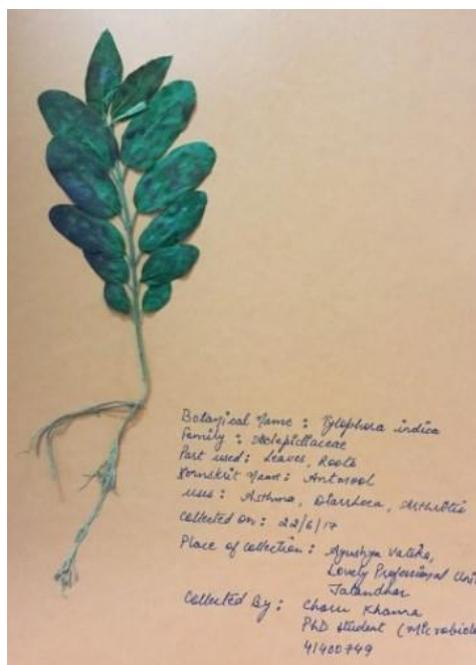 Botanical Name : Tylophora indica
Family : Asclepidaceae
Part used : Leaves, Roots
Sanskrit Name : Antmool
uses : Asthma, Diarrhoea, Arthritis
Collected on : 22/6/17
Place of collection : Ayushya Vatika,
Lovely Professional Uni
Jalandhar
Collected By : Charu Khanna
PhD student (Microbiolo
41400749